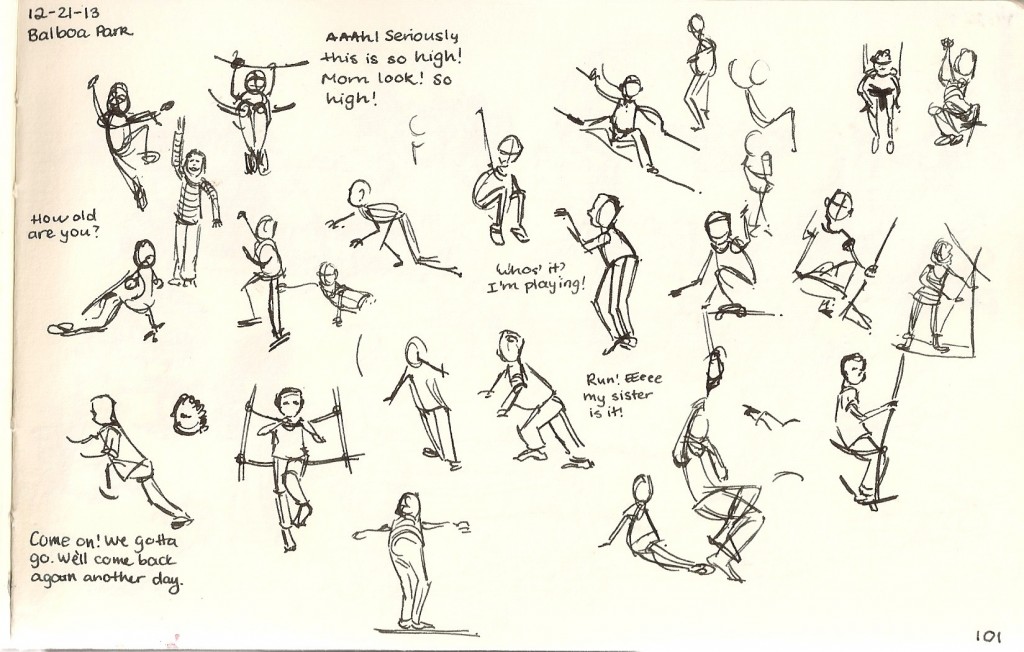 12-21-13
Balboa Park
AAAh! Seriously
this is so high!
Mom look! So
high!
How old
are you?
Whos' it?
I'm playing!
Run! EEeee
my sister
is it!
Come on! We gotta
go. We'll come back
again another day.
101